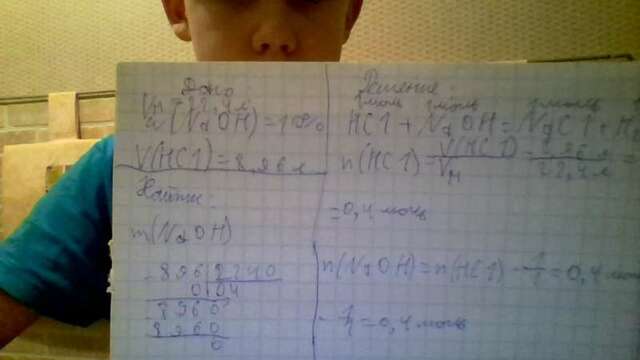 Дано
Vm = 22,4 л
w(NaOH) = 10%
V(HCl) = 8,96 л
Найти:
m(NaOH)
- 896 | 2240
0 | 04
- 8960
8960
0
Решение:
1моль 1моль 1моль
HCl + NaOH = NaCl + H
n(HCl) = V(HCl) / Vм = 8,96 л / 22,4 л =
= 0,4 моль
n(NaOH) = n(HCl) · 1/1 = 0,4 мол
· 1/1 = 0,4 моль